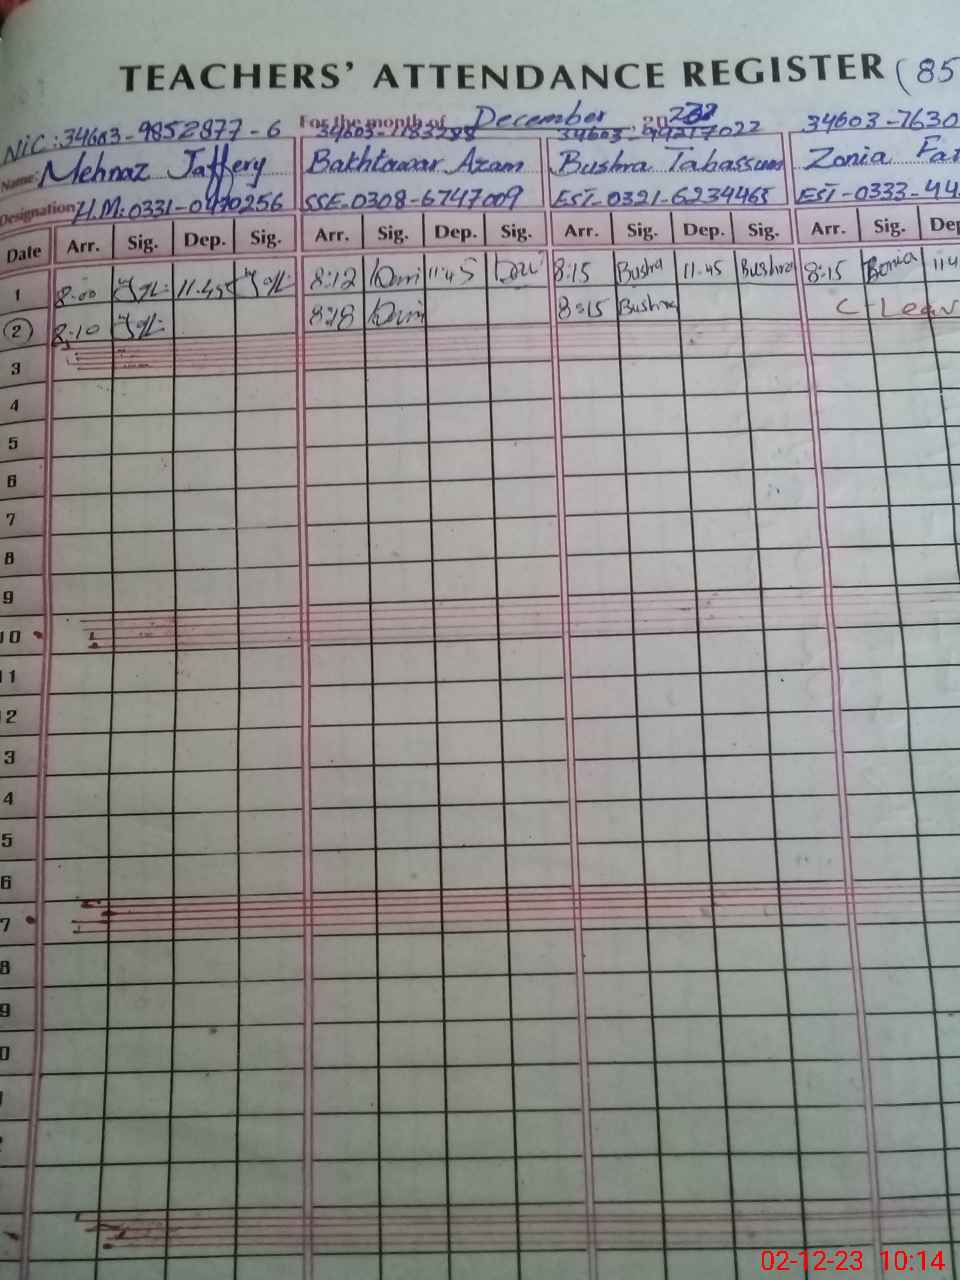 TEACHERS' ATTENDANCE REGISTER (85
For the month of December 20
NIC: 34603-9852877-6 34603- 34603- 34603-7630
Name: Mehnaz Jaffery Bakhtawar Azam Bushra Tabassum Zonia Fat
Designation H.M: 0331-0470256 SSE-0308-6747009 EST-0321-6234465 EST-0333-44
Date Arr. Sig. Dep. Sig. Arr. Sig. Dep. Sig. Arr. Sig. Dep. Sig. Arr. Sig. Dep
1 8:00 11:45 8:12 11:45 8:15 Bushra 11:45 Bushra 8:15 Zonia 11:4
2 8:10 8:18 8:15 Bushra C-Leav
3
4
5
6
7
8
9
10
11
12
3
4
5
6
7
8
9
0
02-12-23 10:14